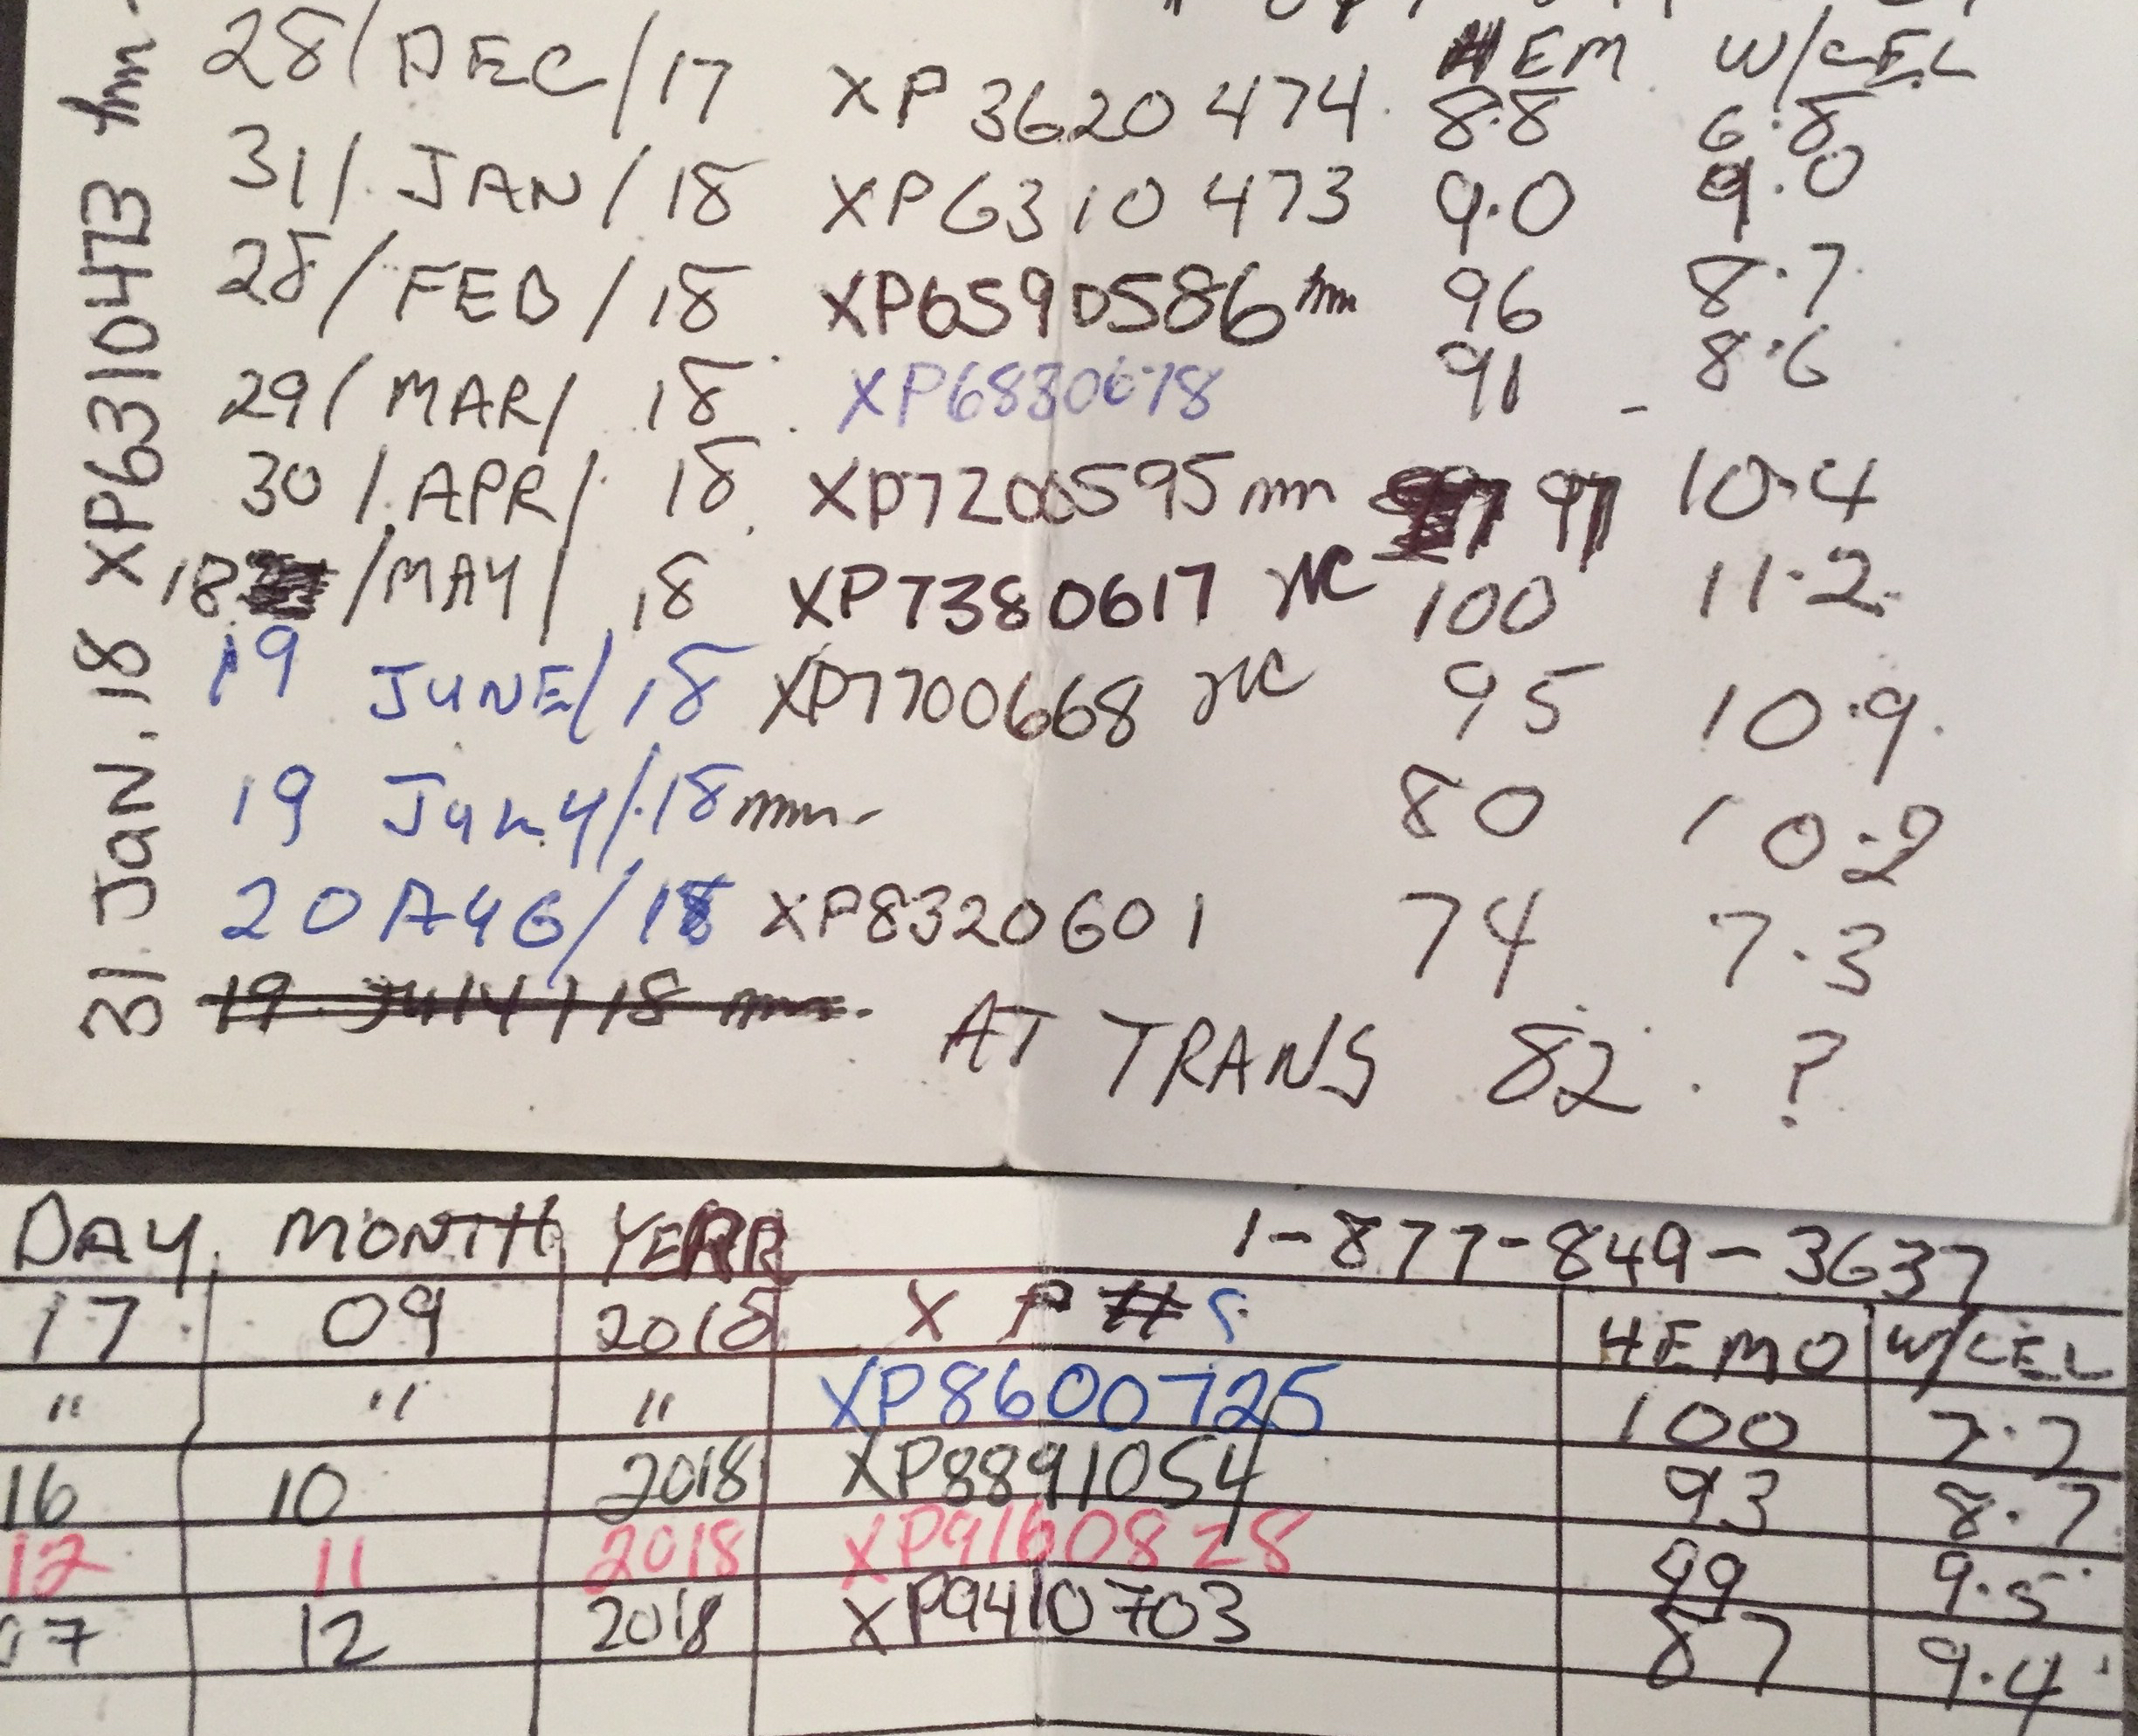 HEM W/CEL
28/DEC/17 XP 3620 474 8.8 6.8
31/JAN/18 XP6310 473 9.0 9.0
28/FEB/18 XP6590586 hm 96 8.7
29/MAR/18 XP6880678 91 - 8.6
30/APR/18 XP7200595 mm 97 10.4
18/MAY/18 XP7380617 NC 100 11.2
19 JUNE/18 XP7700668 NC 95 10.9
19 JULY/18 mm 80 10.2
20 AUG/18 XP8320601 74 7.3
19 July/18
AT TRANS 82 ?
31.JAN.18 XP6310473 hm
DAY MONTH YEAR 1-877-849-3637
17 09 2018 XP #S HEMO W/CEL
" " " XP8600725 100 7.7
16 10 2018 XP8891054 93 8.7
12 11 2018 XP9160828 99 9.5
07 12 2018 XP9410703 87 9.4